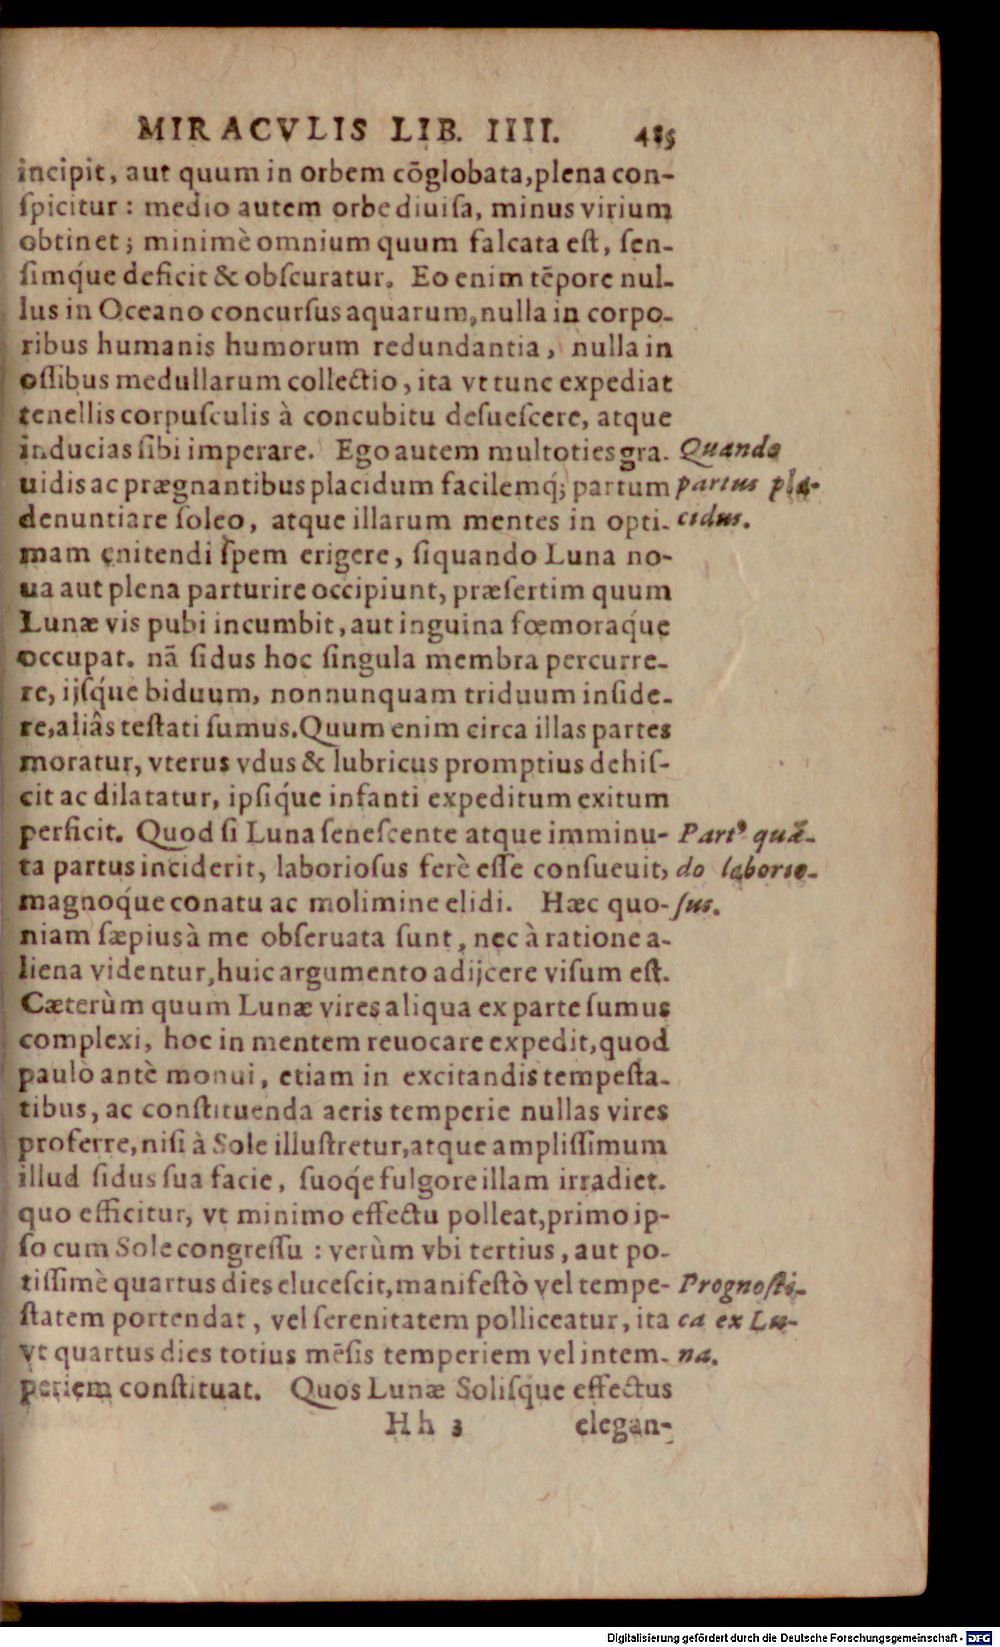 MIRACVLIS LIB. IIII. 485
incipit, aut quum in orbem cõglobata, plena con-
ſpicitur: medio autem orbe diuiſa, minus virium
obtinet; minimè omnium quum falcata eſt, ſen-
ſimq́ue deficit & obſcuratur. Eo enim tẽpore nul-
lus in Oceano concurſus aquarum, nulla in corpo-
ribus humanis humorum redundantia, nulla in
oſſibus medullarum collectio, ita vt tunc expediat
tenellis corpuſculis à concubitu deſueſcere, atque
inducias ſibi imperare. Ego autem multoties gra-
uidis ac prægnantibus placidum facilemq́; partum
denuntiare ſoleo, atque illarum mentes in opti-
mam enitendi ſpem erigere, ſiquando Luna no-
ua aut plena parturire occipiunt, præſertim quum
Lunæ vis pubi incumbit, aut inguina fœmoraq́ue
occupat. nã ſidus hoc ſingula membra percurre-
re, ijſq́ue biduum, nonnunquam triduum inſide-
re, aliâs teſtati ſumus. Quum enim circa illas partes
moratur, vterus vdus & lubricus promptius dehiſ-
cit ac dilatatur, ipſiq́ue infanti expeditum exitum
perficit. Quod ſi Luna ſeneſcente atque imminu-
ta partus inciderit, laborioſus ferè eſſe conſueuit,
magnoq́ue conatu ac molimine elidi. Hæc quo-
niam ſæpius à me obſeruata ſunt, nec à ratione a-
liena videntur, huic argumento adijcere viſum eſt.
Cæterùm quum Lunæ vires aliqua ex parte ſumus
complexi, hoc in mentem reuocare expedit, quod
paulò antè monui, etiam in excitandis tempeſta-
tibus, ac conſtituenda aeris temperie nullas vires
proferre, niſi à Sole illuſtretur, atque ampliſſimum
illud ſidus ſua facie, ſuoq́e fulgore illam irradiet.
quo efficitur, vt minimo effectu polleat, primo ip-
ſo cum Sole congreſſu: verùm vbi tertius, aut po-
tiſſimè quartus dies eluceſcit, manifeſtò vel tempe-
ſtatem portendat, vel ſerenitatem polliceatur, ita
vt quartus dies totius mẽſis temperiem vel intem-
periem conſtituat. Quos Lunæ Soliſque effectus
Hh 3 elegan-
Quando
partus pla-
cidus.
Partꝰ quã-
do laborio-
ſus.
Prognoſti-
ca ex Lu-
na.
Digitalisierung gefördert durch die Deutsche Forschungsgemeinschaft - DFG